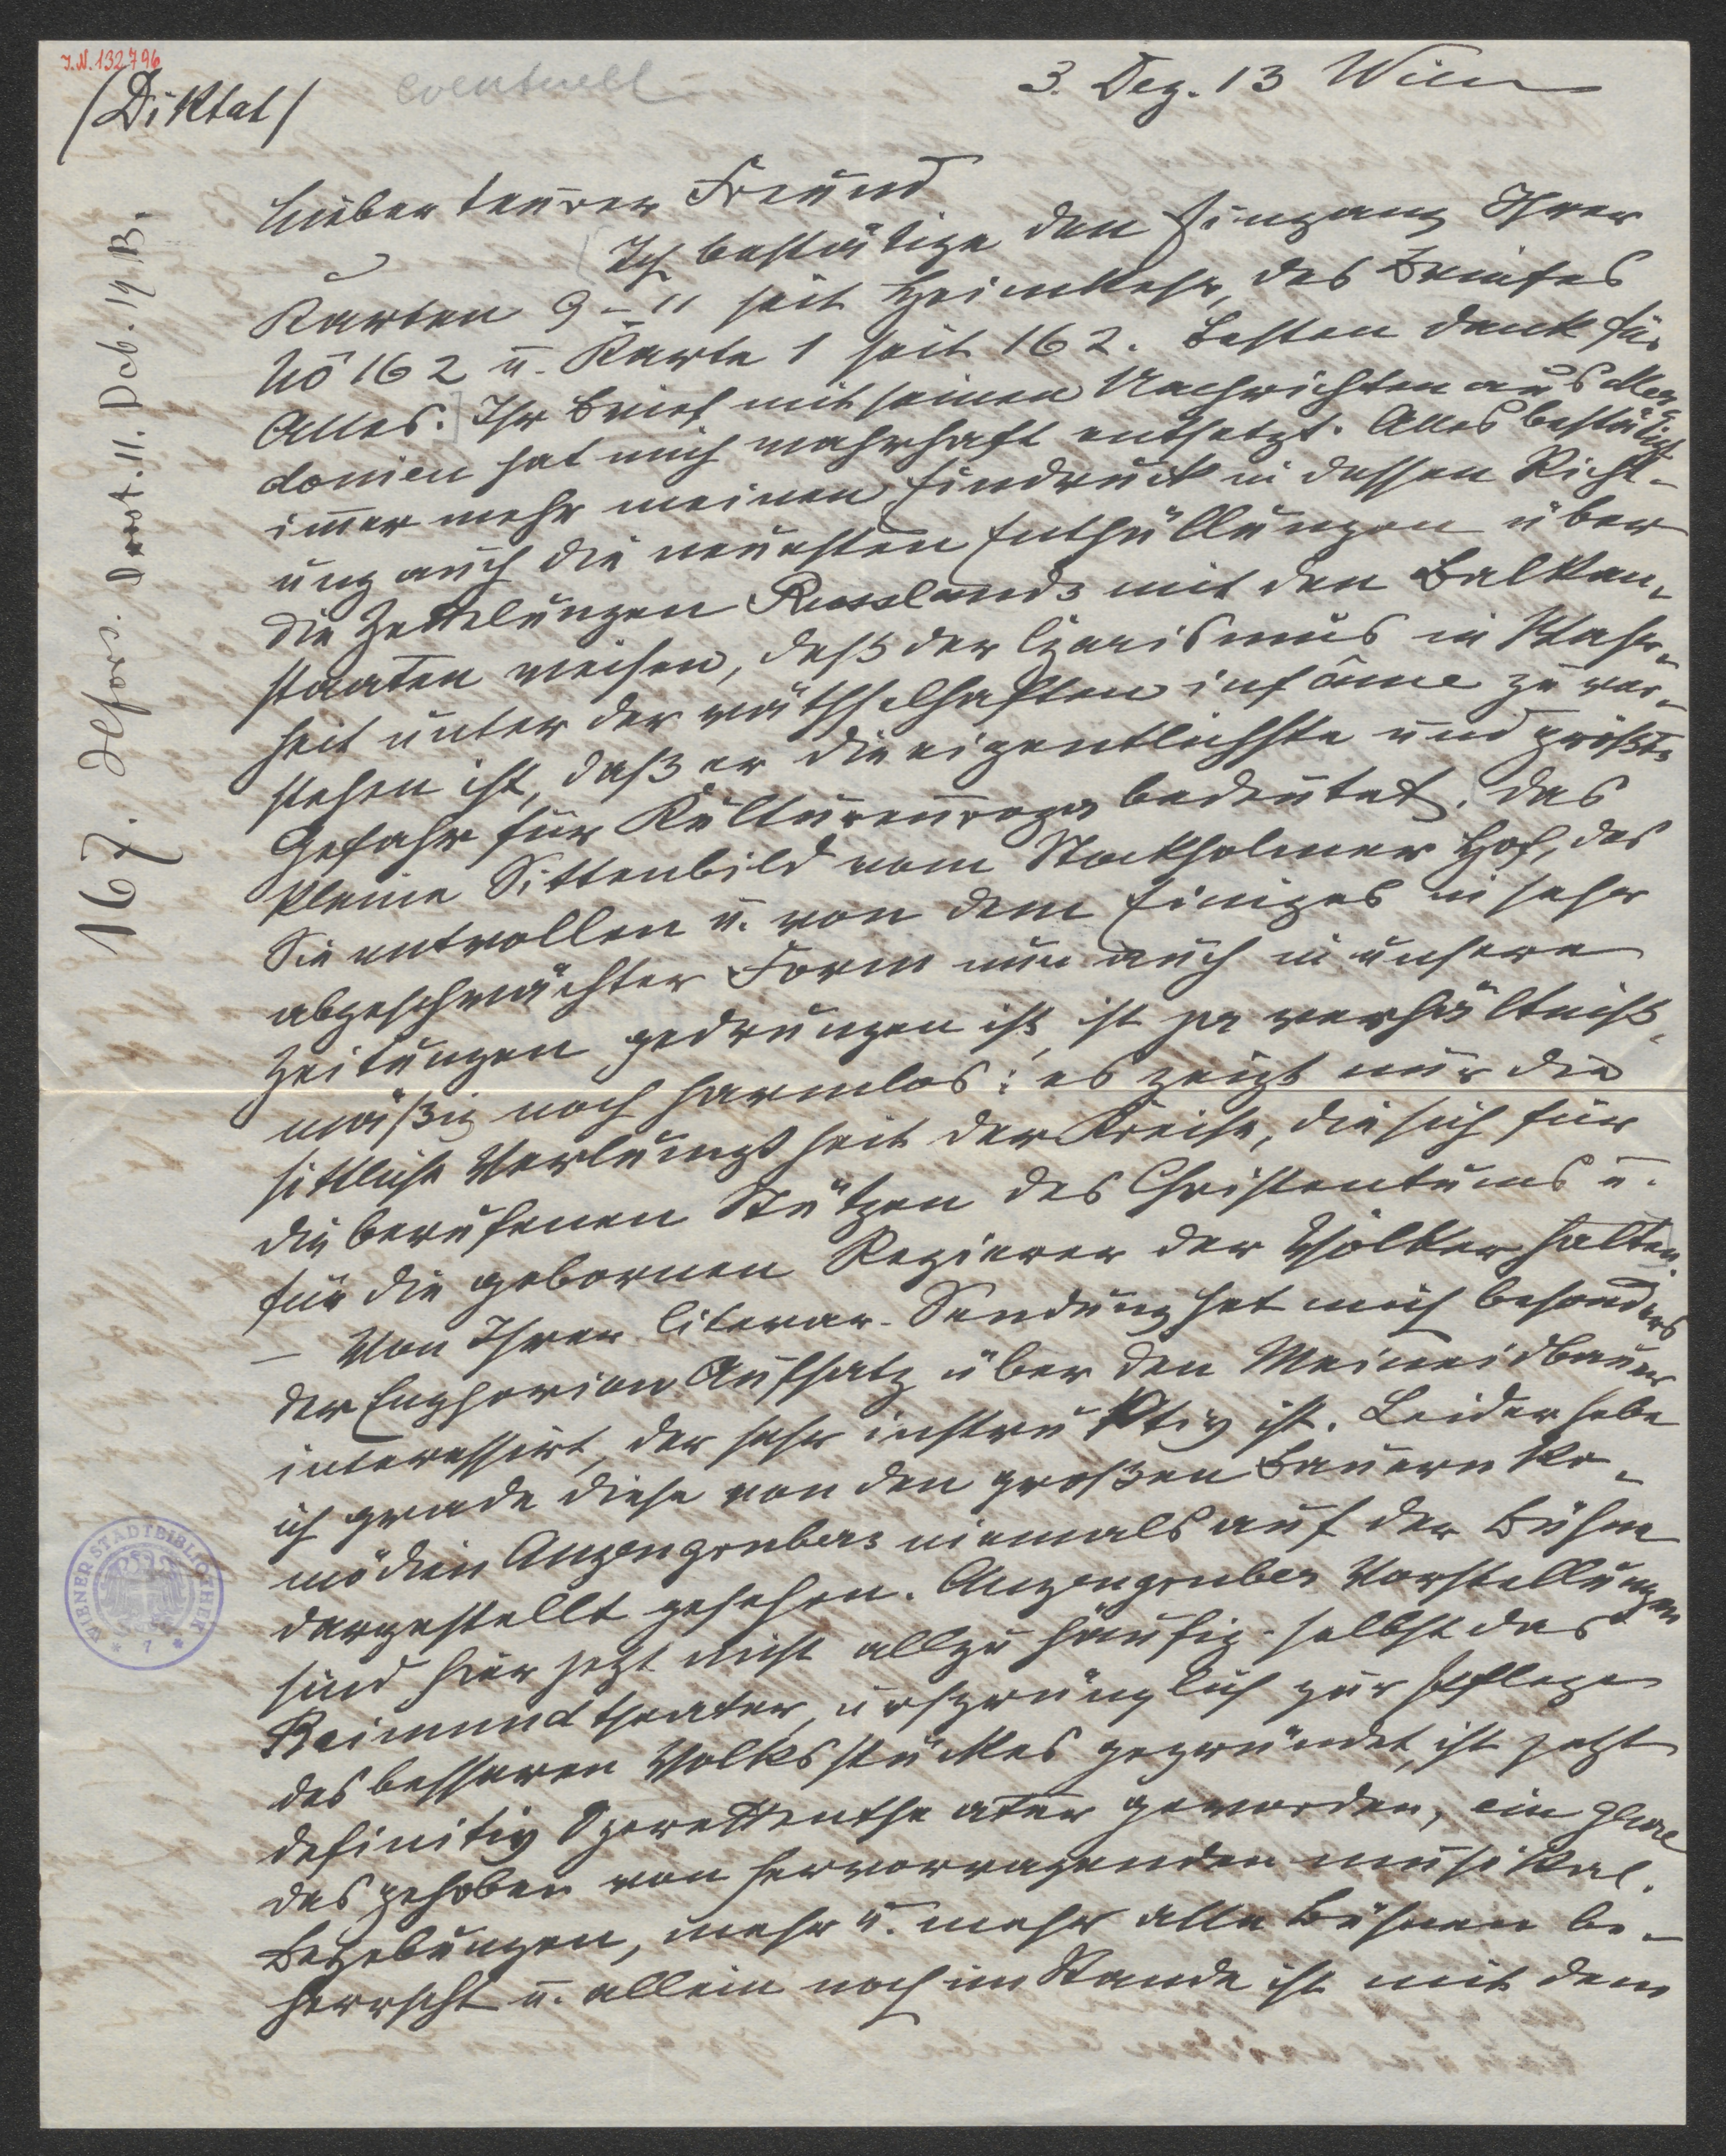 I.N. 132796
(Diktat)
eventuell
3. Dez. 13 Wien
Lieber teurer Freund
Ich bestätige den Eingang Ihrer
Karten 9–11 seit Heimkehr, des Briefes
No 162 u. Karte 1 seit 162. Besten Dank für
Alles. Ihr Brief mit seinen Nachrichten aus Maze-
donien hat mich wahrhaft entsetzt. Alles bestätigt
immer mehr meinen Eindruck in dessen Richt-
ung auch die neuesten Enthüllungen über
die Zettelungen Russlands mit den Balkan-
staaten weisen, daß der Czarismus in Wahr-
heit unter der räthselhaften infâme zu ver-
stehen ist, daß er die eigentlichste und größte
Gefahr für Kultureuropa bedeutet. Das
kleine Sittenbild vom Stockholmer Hof, das
Sie entrollen u. von dem Einiges in sehr
abgeschwächter Form nun auch in unsere
Zeitungen gedrungen ist, ist ja verhältniß-
mäßig noch harmlos: es zeigt nur die
sittliche Verlumptheit der Kreise, die sich für
die berufenen Stützen des Christentums u.
für die gebornen Regierer der Völker halten.
– Von Ihrer literar. Sendung hat mich besonders
der Euphorion Aufsatz über den Meineidbauer
interessirt, der sehr instruktiv ist. Leider habe
ich grade diese von den großen Bauernko-
mödien Anzengrubers niemals auf der Bühne
dargestellt gesehen. Anzengruber Vorstellungen
sind hier jetzt nicht allzu häufig. selbst das
Raimundtheater, ursprünglich zur Pflege
des besseren Volksstückes gegründet, ist jetzt
definitiv Operettentheater geworden, ein Genre
das gehoben von hervorragenden musikal.
Begabungen, mehr u. mehr alle Bühnen be-
herrscht u. allein noch im Stande ist mit dem
167. 11. Dcb. 1913.
WIENER STADTBIBLIOTHEK
* 7 *